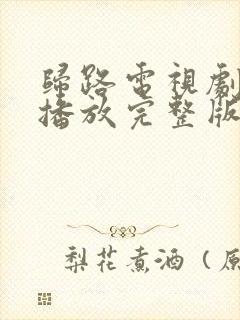 歸路電視劇
播放完整版
梨花煮酒（原